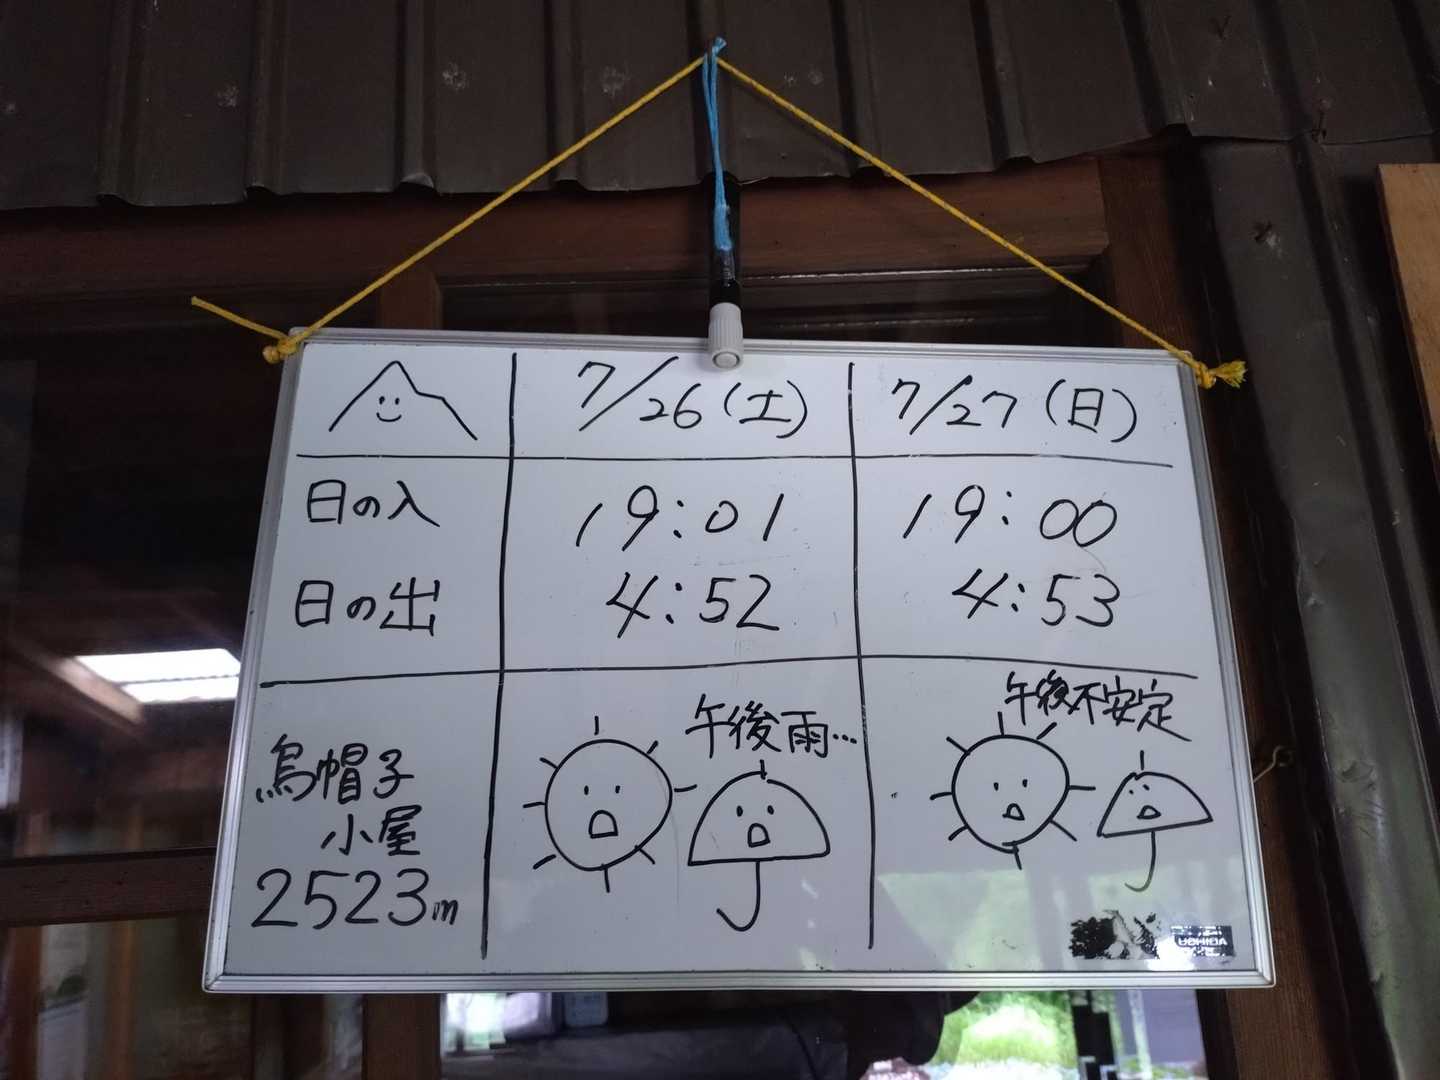 7/26(土) 7/27(日)
日の入 19:01 19:00
日の出 4:52 4:53
烏帽子
小屋
2523m
午後雨…
午後不安定